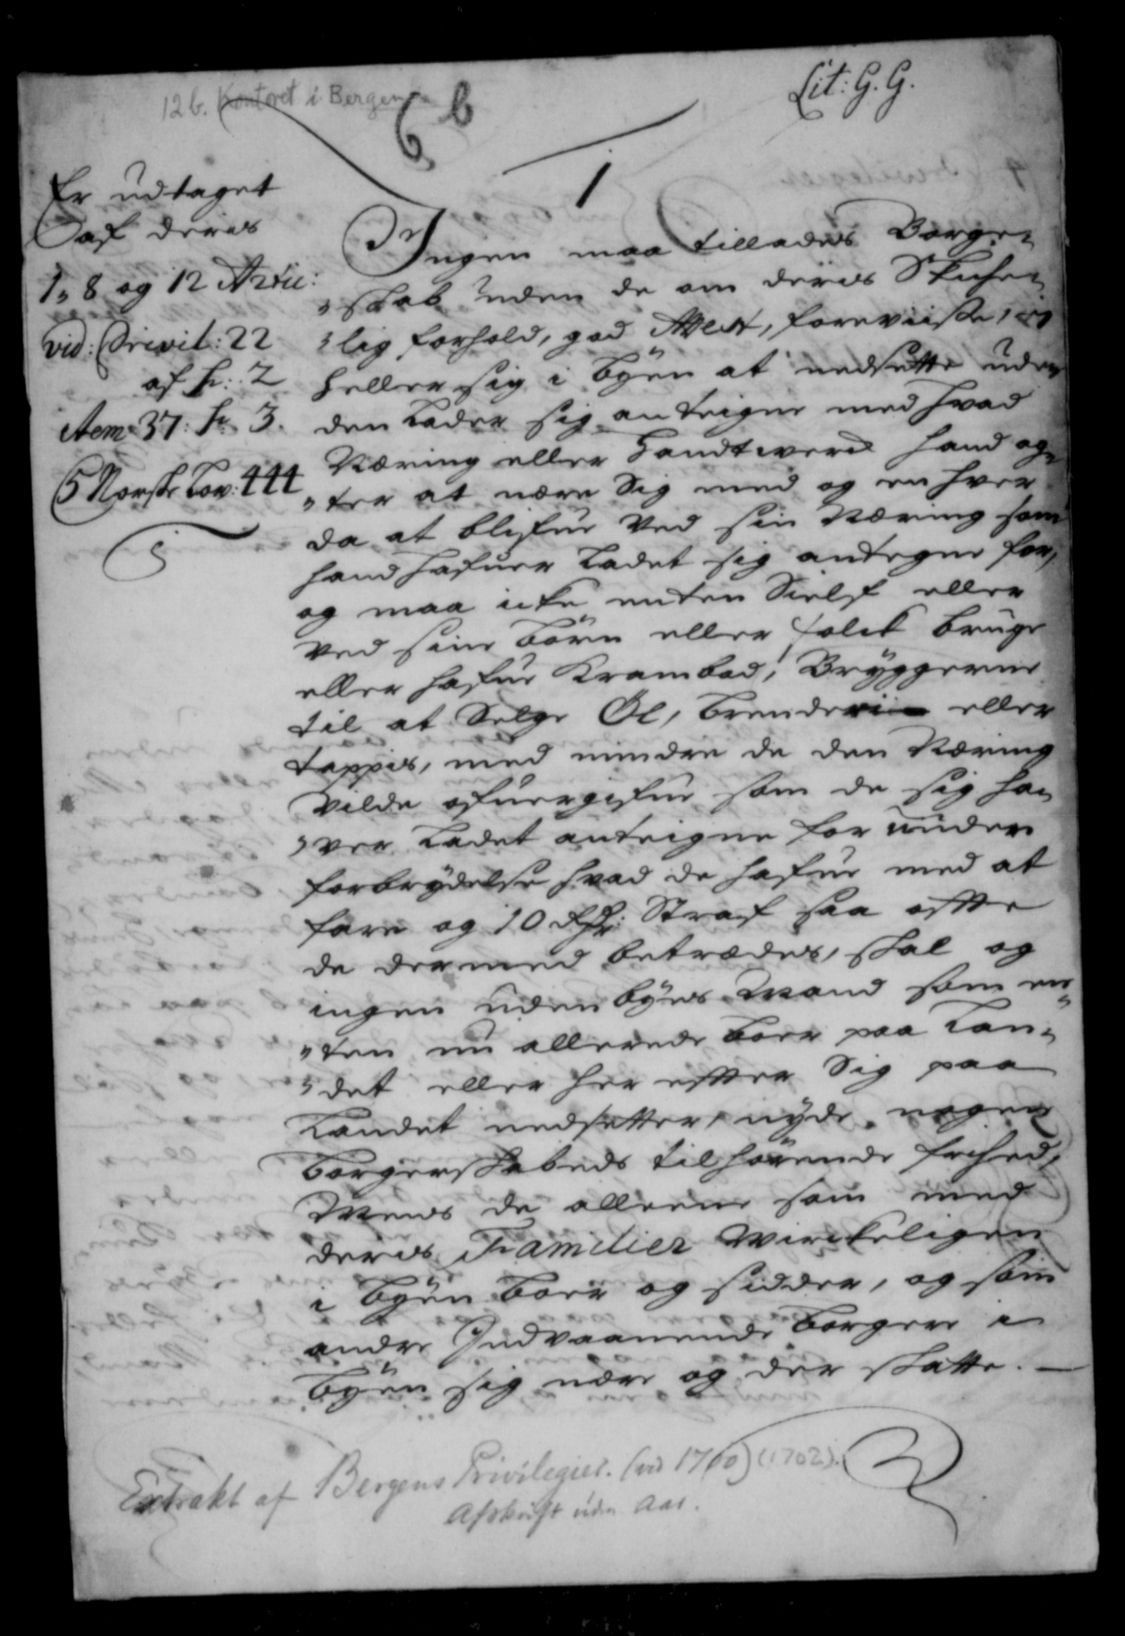 Lit: G. G.
12 b. Kontoret i Bergen
6 b
1
Er udtaget
af deris
1, 8 og 12 Artic:
vid: Privil: 22
af fr: 2
item 37: fr 3.
5 Norske Lov: 444
Ingen maa tillades Borger-
skab uden de om deris Skicke-
lig forhold, god Attest, foreviise, ey
heller sig i byen at nedsætte uden
den Lader sig an teigne med hvad
Næring eller Handtwerck hand ag-
ter at nære Sig med og en hver
da at blifve Ved sin Næring som
hand hafuer Ladet sig antegne for,
og maa icke enten Sielf eller
Ved sine börn eller folck bruge
eller hafue Krambod, Bryggerne
til at Selge Öl, brendevin eller
tappis, med mindre de den Næring
Vilde ofuergifve som de sig ha-
ver Ladet anteigne for under
forbrydelse hvad de hafue med at
fare og 10 Rdr: Straf saa ofte
de dermed betrædes, skal og
ingen uden byes Mand som en-
ten nu allerede boer paa Lan-
det eller her efter Sig paa
Landet nedsetter, nyde nogen
borgerskabeds tilhörende frihed,
Mens de alleene som med
deris Familier Wirckeligen
i byen boer og sidder, og som
andre Indvaanende borgere i
byen sig nære og der skatte.
Extrakt af Bergens Privilegier. (vid 1700) (1702).
Afskrift uden Aar.